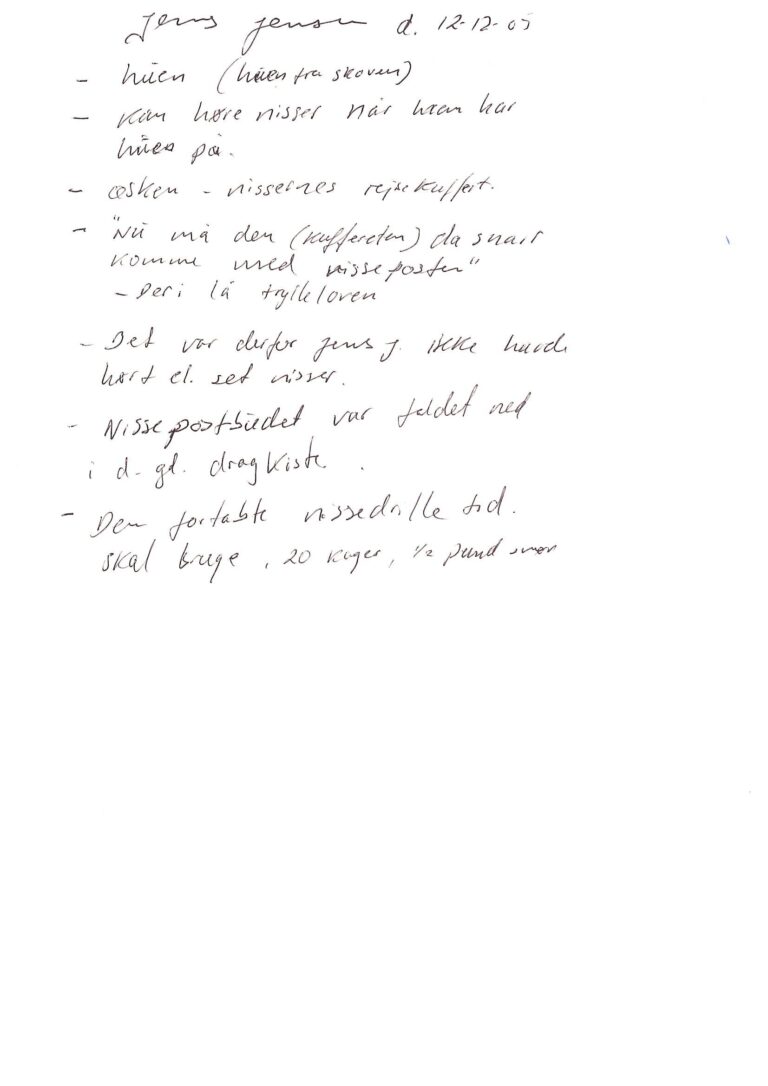 Jens Jensen d. 12-12-05
- hüen (hüen fra skoven)
- Kan høre nisser når han har
hüen på.
- æsken - nissernes rejsekuffert.
- "Nü må den (kufferten) da snart
komme med nisseposten"
- Deri lå trylleloven
- Det var derfor Jens J. ikke havde
hørt el. set nisser.
- Nissepostbüdet var faldet ned
i d. gl. dragkiste.
- Den fortabte nissedrille tid.
skal bruge, 20 kager, 1/2 pund smør